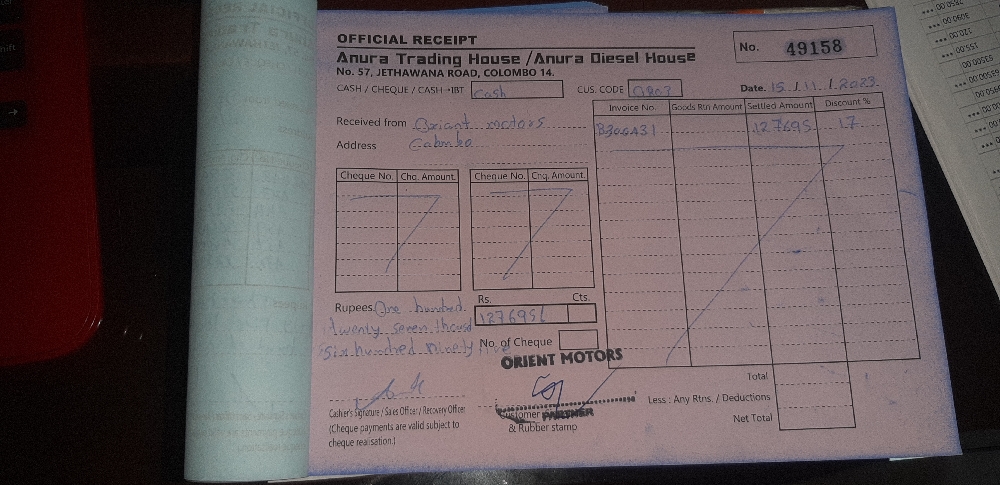 OFFICIAL RECEIPT
Anura Trading House / Anura Diesel House
No. 57, JETHAWANA ROAD, COLOMBO 14.
No. 49158
CASH / CHEQUE / CASH-IBT Cash
CUS. CODE
Date. 15/11/2023
Received from Orient motors
Address
Invoice No. Goods Rtn Amount Settled Amount Discount %
127695 17
Cheque No. Chq. Amount. Cheque No. Chq. Amount.
Rupees One hundred
twenty seven thousd
Six hundred ninety five
Rs. Cts.
127695
No. of Cheque
ORIENT MOTORS
Cashier's Signature / Sales Officer / Recovery Officer
(Cheque payments are valid subject to
cheque realisation.)
Customer
PARTNER
& Rubber stamp
Total
Less : Any Rtns. / Deductions
Net Total